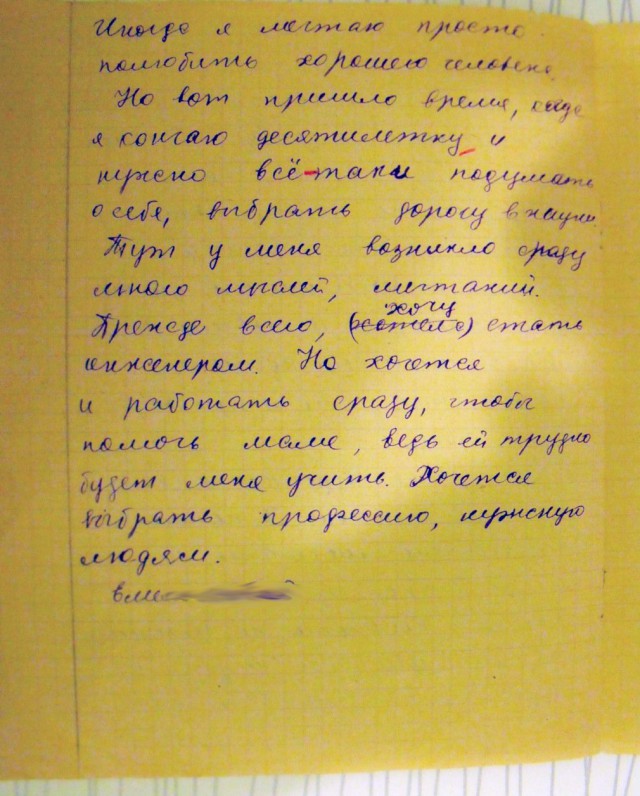 Иногда я мечтаю просто
полюбить хорошего человека.
Но вот пришло время, когда
я кончаю десятилетку, и
нужно всё-таки подумать
о себе, выбрать дорогу в жизни.
Тут у меня возникло сразу
много мыслей, мечтаний.
хочу
Прежде всего, (хотела) стать
инженером. Но хочется
и работать сразу, чтобы
помочь маме, ведь ей трудно
будет меня учить. Хочется
выбрать профессию, нужную
людям.